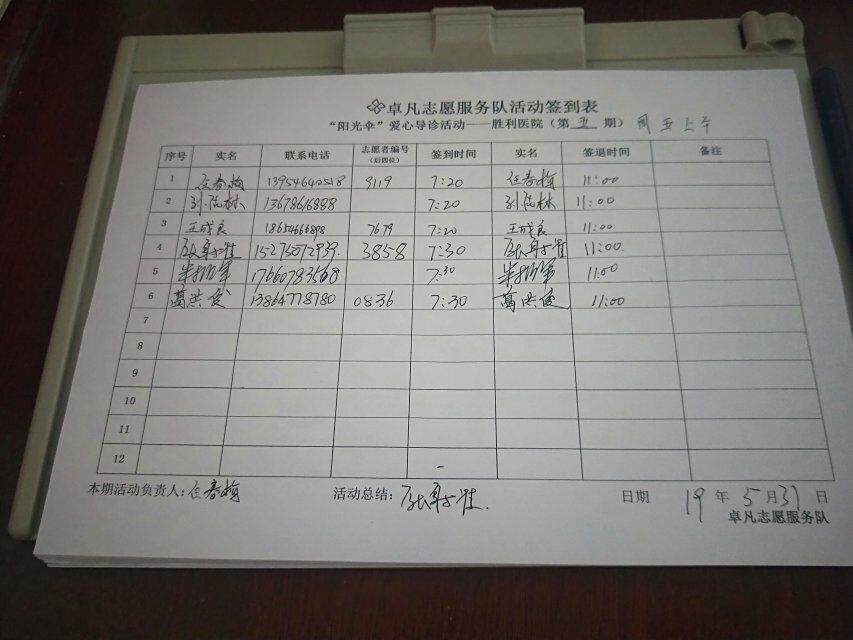 卓凡志愿服务队活动签到表
“阳光伞”爱心导诊活动——胜利医院（第五期） 周五上午
序号 实名 联系电话 志愿者编号（后四位） 签到时间 实名 签退时间 备注
1 任春梅 13954642518 9119 7:20 任春梅 11:00
2 13678616888 7:20 11:00
3 王成良 18654666898 7679 7:20 王成良 11:00
4 15275072939 3858 7:30 11:00
5 17660783568 7:30 11:00
6 葛洪俊 13864778780 0836 7:30 葛洪俊 11:00
7
8
9
10
11
12
本期活动负责人：任春梅 活动总结： 日期 19年5月31日
卓凡志愿服务队